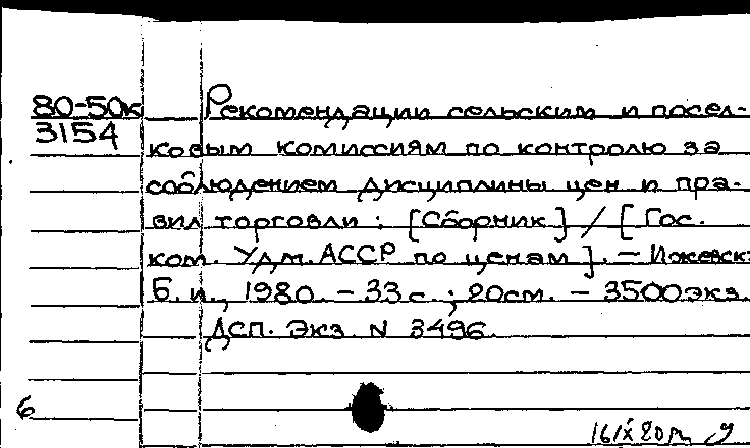 80-50к
3154
Рекомендации сельским и посел-
ковым комиссиям по контролю за
соблюдением дисциплины цен и пра-
вил торговли : [Сборник] / [Гос.
ком. Удм. АССР по ценам]. – Ижевск:
Б. и., 1980. – 33 с. ; 20 см. – 3500 экз.
Дсп. Экз. N 3496.
б
16/X 80